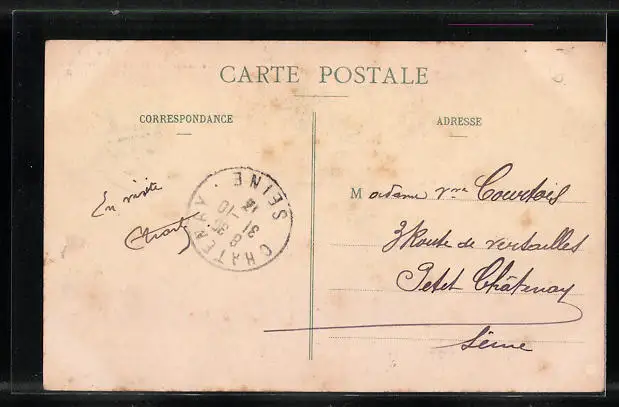 CARTE POSTALE
CORRESPONDANCE
ADRESSE
En visite
Madame Vve Courtois
3 Route de Versailles
Petit Châtenay
Seine
CHATENAY
SEINE
8
31-10